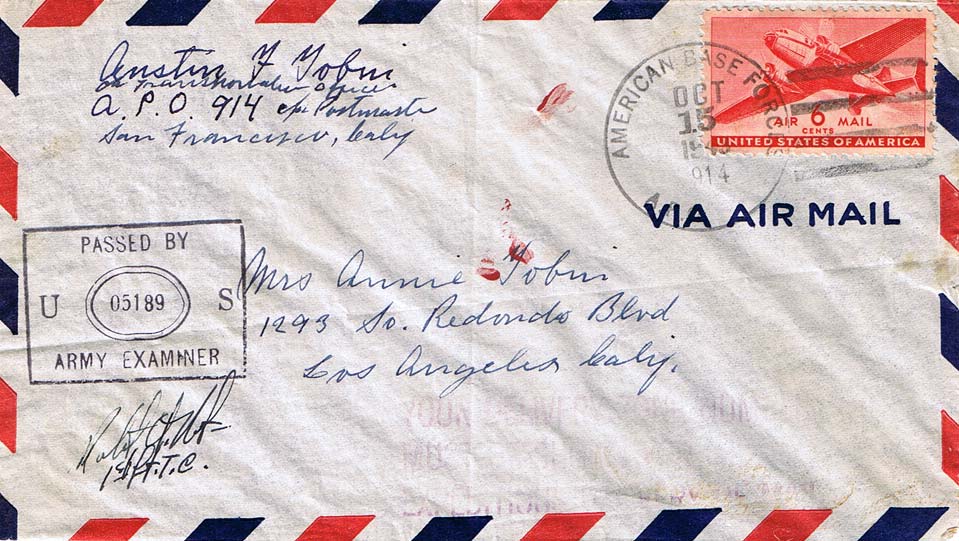 Austin F Tobin
on Transportation Office
A.P.O. 914 c/o Postmaster
San Francisco, Calif
AMERICAN BASE FORCES
OCT
15
914
AIR 6 MAIL
CENTS
UNITED STATES OF AMERICA
VIA AIR MAIL
PASSED BY
U 05189 S
ARMY EXAMINER
Mrs Annie Tobin
1293 So. Redondo Blvd
Los Angeles Calif.
1st Lt. T.C.